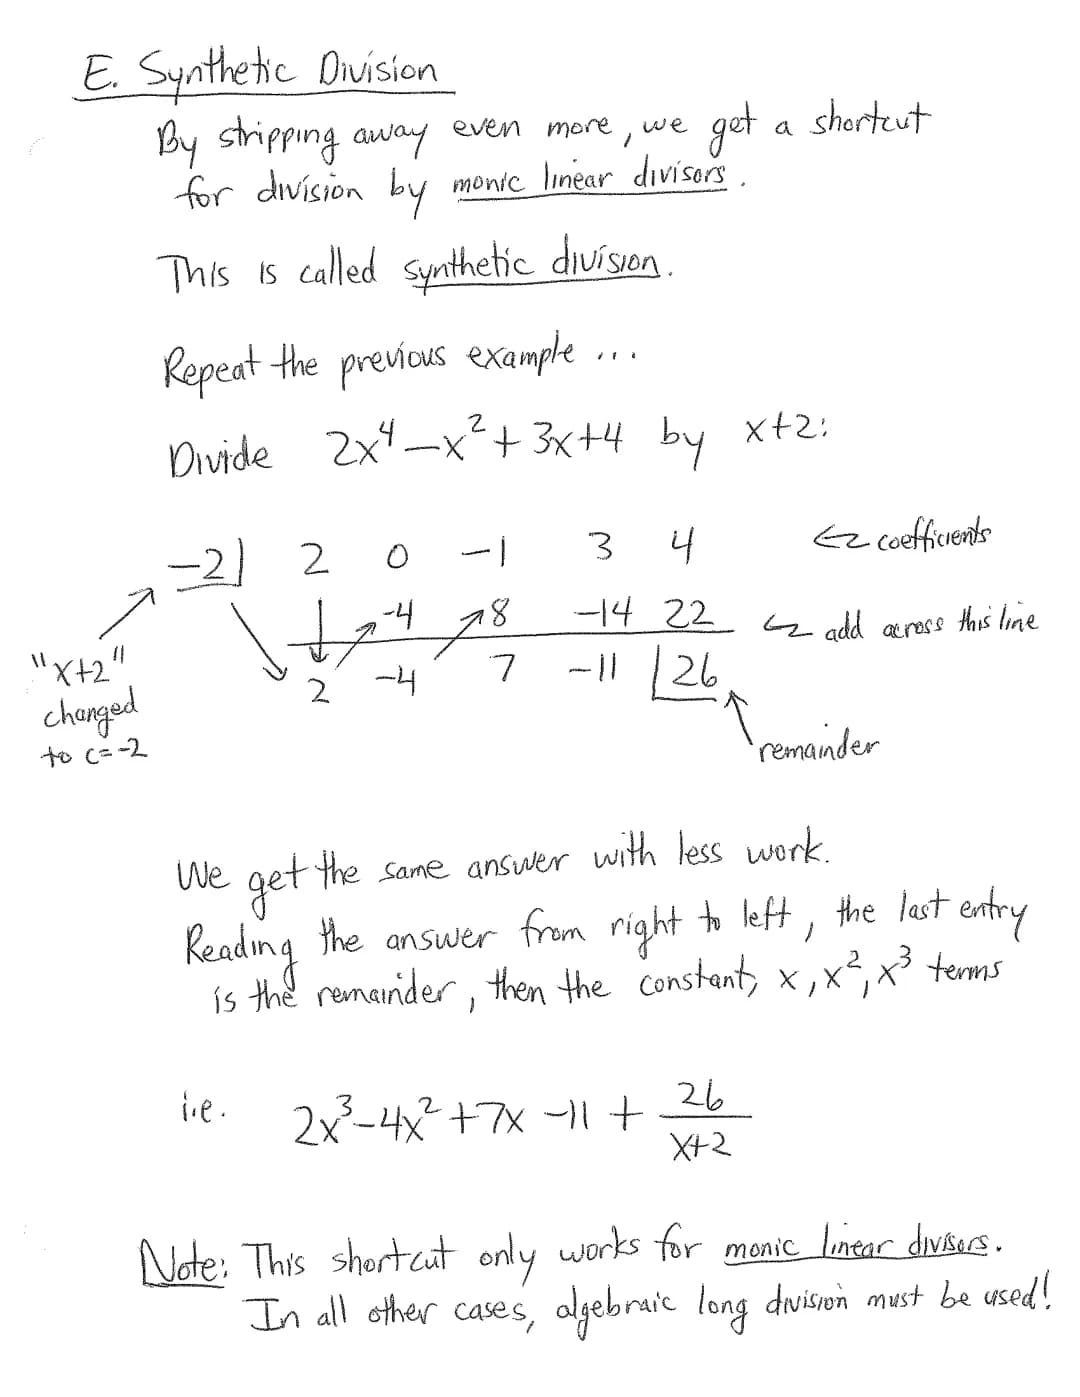 E. Synthetic Division
By stripping away even more, we get a shortcut
for division by monic linear divisors.
This is called synthetic division.
Repeat the previous example ...
Divide 2x⁴-x²+3x+4 by x+2:
-2| 2 0 -1 3 4 ← coefficients
-4 8 -14 22 ← add across this line
2 -4 7 -11 |26
"x+2"
changed
to c=-2
remainder
We get the same answer with less work.
Reading the answer from right to left, the last entry
is the remainder, then the constant, x, x², x³ terms
i.e. 2x³-4x²+7x-11 + 26/(x+2)
Note: This shortcut only works for monic linear divisors.
In all other cases, algebraic long division must be used!